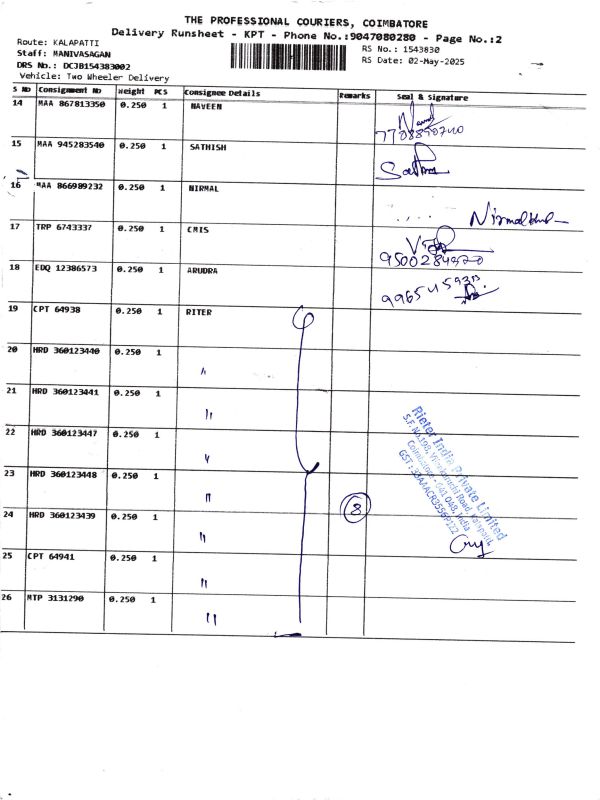 THE PROFESSIONAL COURIERS, COIMBATORE
Delivery Runsheet - KPT - Phone No.:9047080280 - Page No.:2
Route: KALAPATTI
Staff: MANIVASAGAN
DRS No.: DCJB154383002
Vehicle: Two Wheeler Delivery
RS No.: 1543830
RS Date: 02-May-2025
S No Consignment No Weight PCS Consignee Details Remarks Seal & Signature
14 MAA 867813350 0.250 1 NAVEEN
15 MAA 945283540 0.250 1 SATHISH
16 MAA 866989232 0.250 1 NIRMAL
17 TRP 6743337 0.250 1 CMIS
9500284920
18 EDQ 12386573 0.250 1 ARUDRA
19 CPT 64938 0.250 1 RITER
20 HRD 360123440 0.250 1 "
21 HRD 360123441 0.250 1 "
22 HRD 360123447 0.250 1 "
23 HRD 360123448 0.250 1 "
8
24 HRD 360123439 0.250 1 "
25 CPT 64941 0.250 1 "
26 MTP 3131290 0.250 1 "
Rieter India Private Limited
Coimbatore - 641 048, India